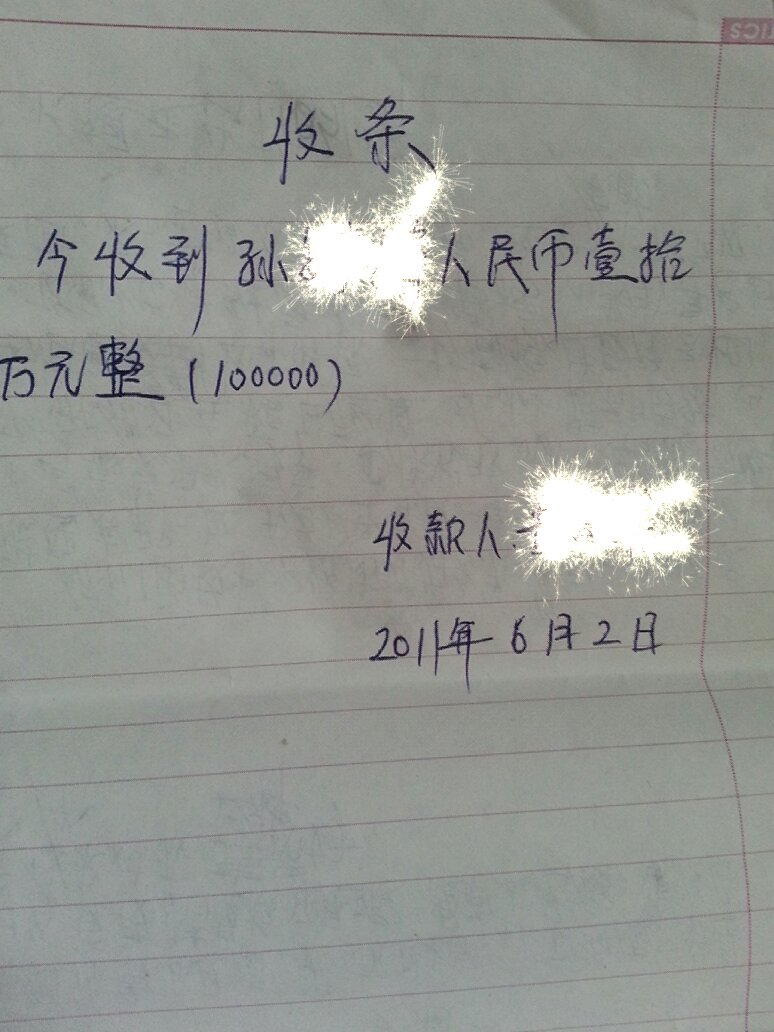 收条
今收到孙 人民币壹拾
万元整(100000)
收款人:
2011年6月2日